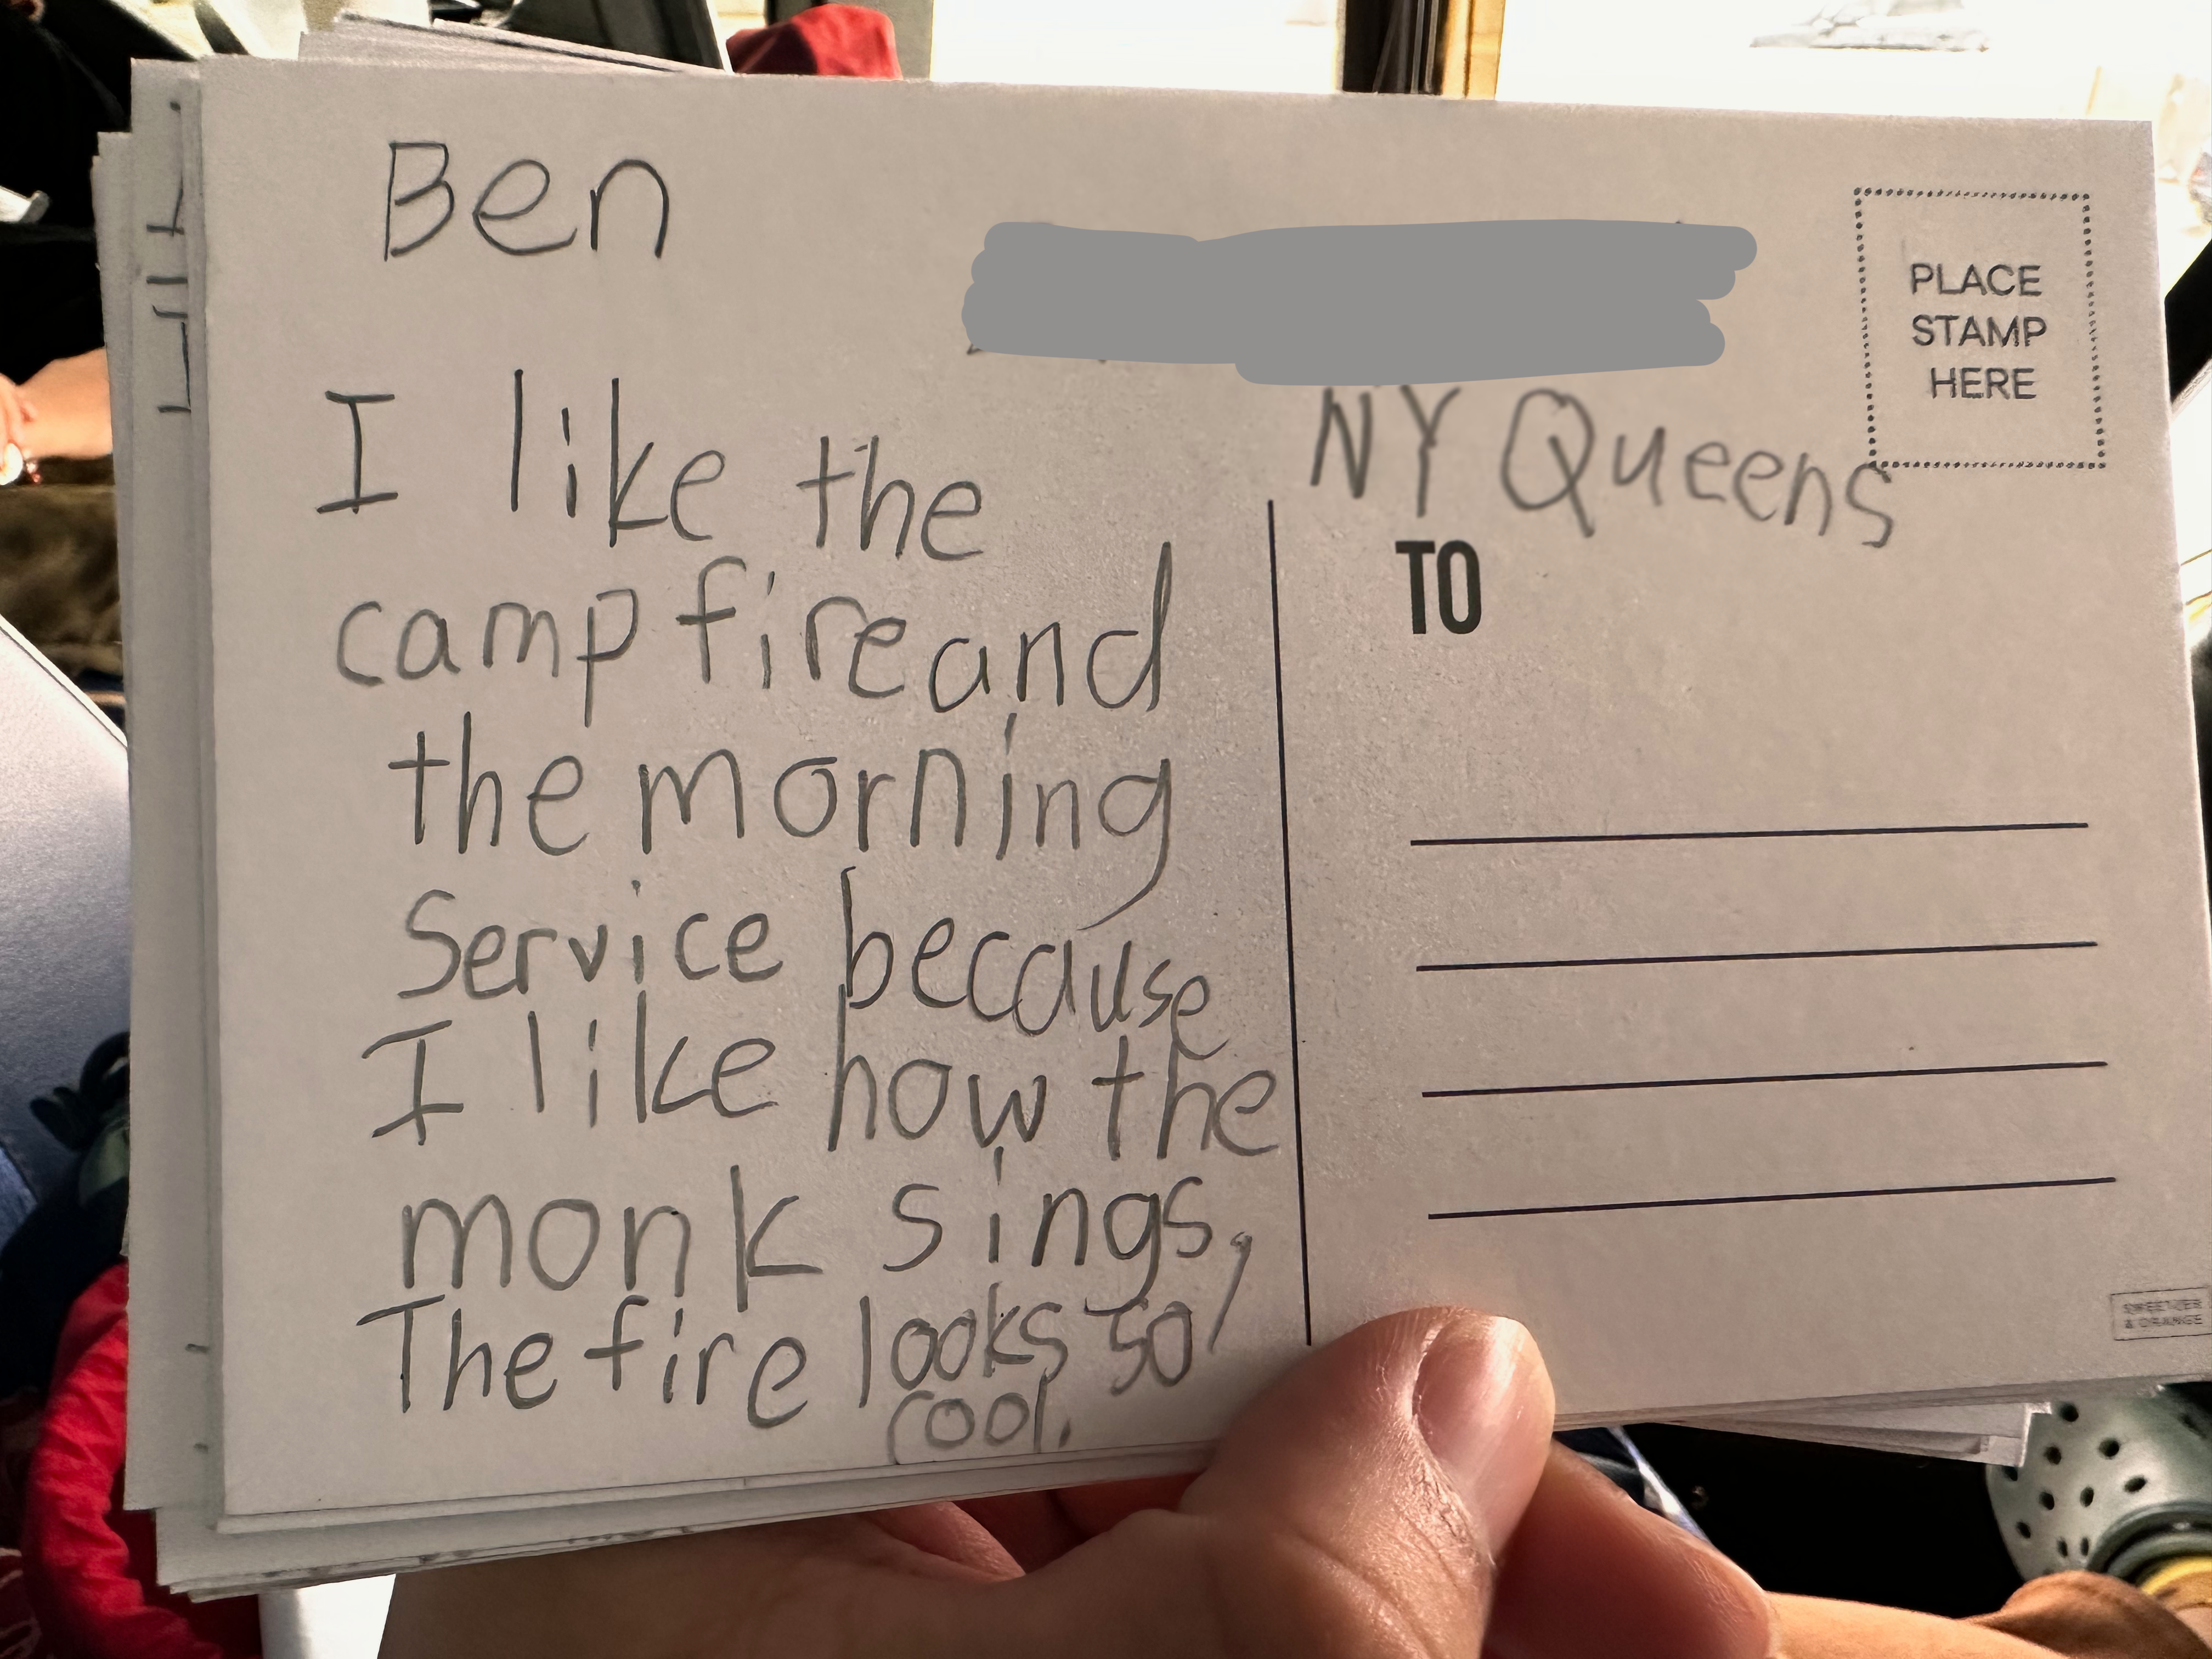 Ben
I like the
camp fire and
the morning
Service because
I like how the
monk sings,
The fire looks so
cool.
NY Queens
PLACE
STAMP
HERE
TO
SWEETZER
& ORANGE